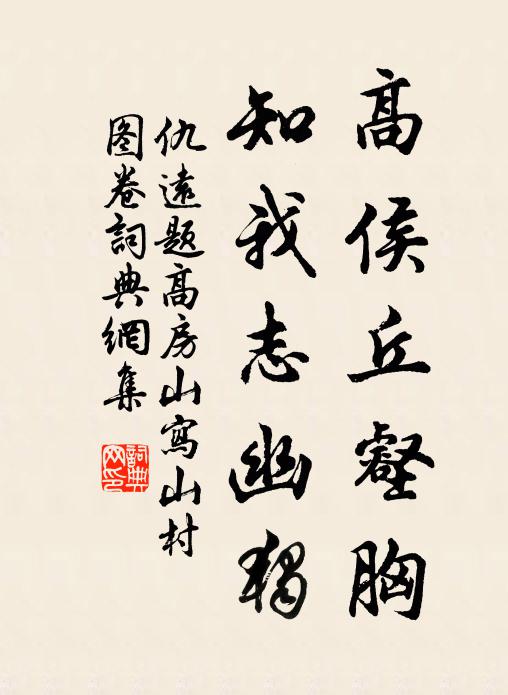 高侯丘壑胸
知我志幽獨
仇遠題高房山寫山村
图卷詞典網集
詞典网印